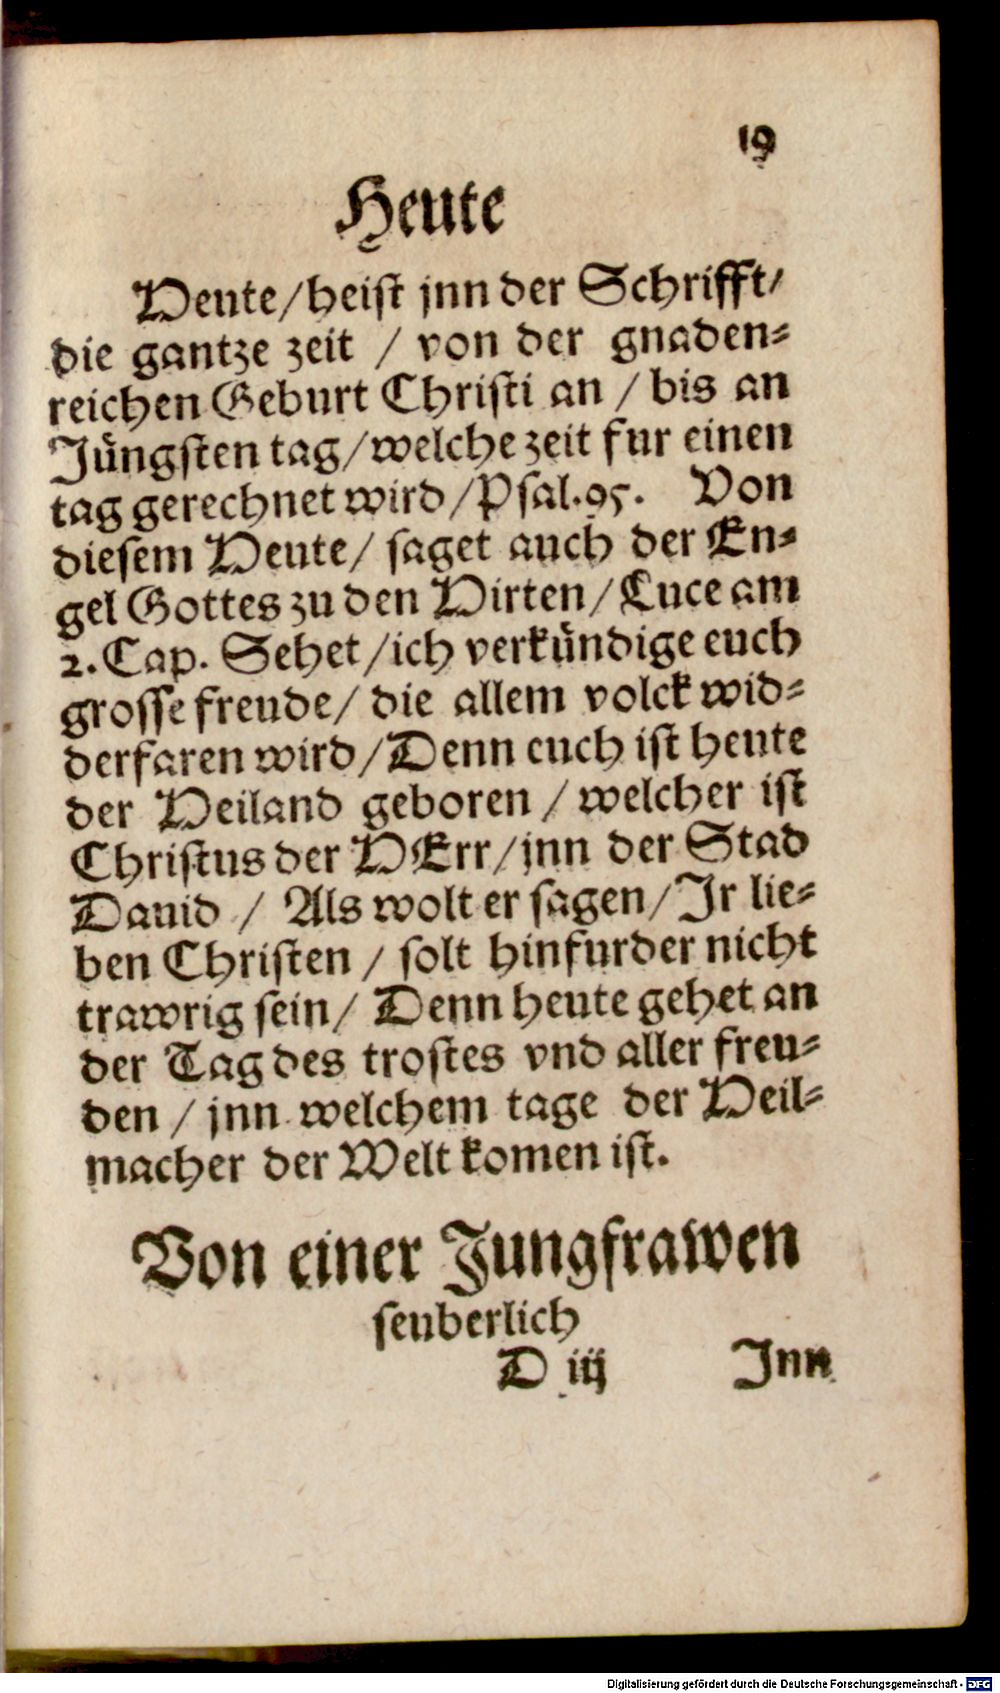 19
Heute
Heute/heist jnn der Schrifft/
die gantze zeit / von der gnaden⸗
reichen Geburt Christi an / bis an
Jüngsten tag/welche zeit fur einen
tag gerechnet wird/Psal.95. Von
diesem Heute/ saget auch der En⸗
gel Gottes zu den Hirten/Luce am
2. Cap. Sehet/ich verkündige euch
grosse freude/ die allem volck wid⸗
derfaren wird/Denn euch ist heute
der Heiland geboren / welcher ist
Christus der HErr/jnn der Stad
Dauid / Als wolt er sagen/Jr lie⸗
ben Christen / solt hinfurder nicht
trawrig sein/ Denn heute gehet an
der Tag des trostes vnd aller freu⸗
den / jnn welchem tage der Heil⸗
macher der Welt komen ist.
Von einer Jungfrawen
seuberlich
D iij Jnn
Digitalisierung gefördert durch die Deutsche Forschungsgemeinschaft - DFG